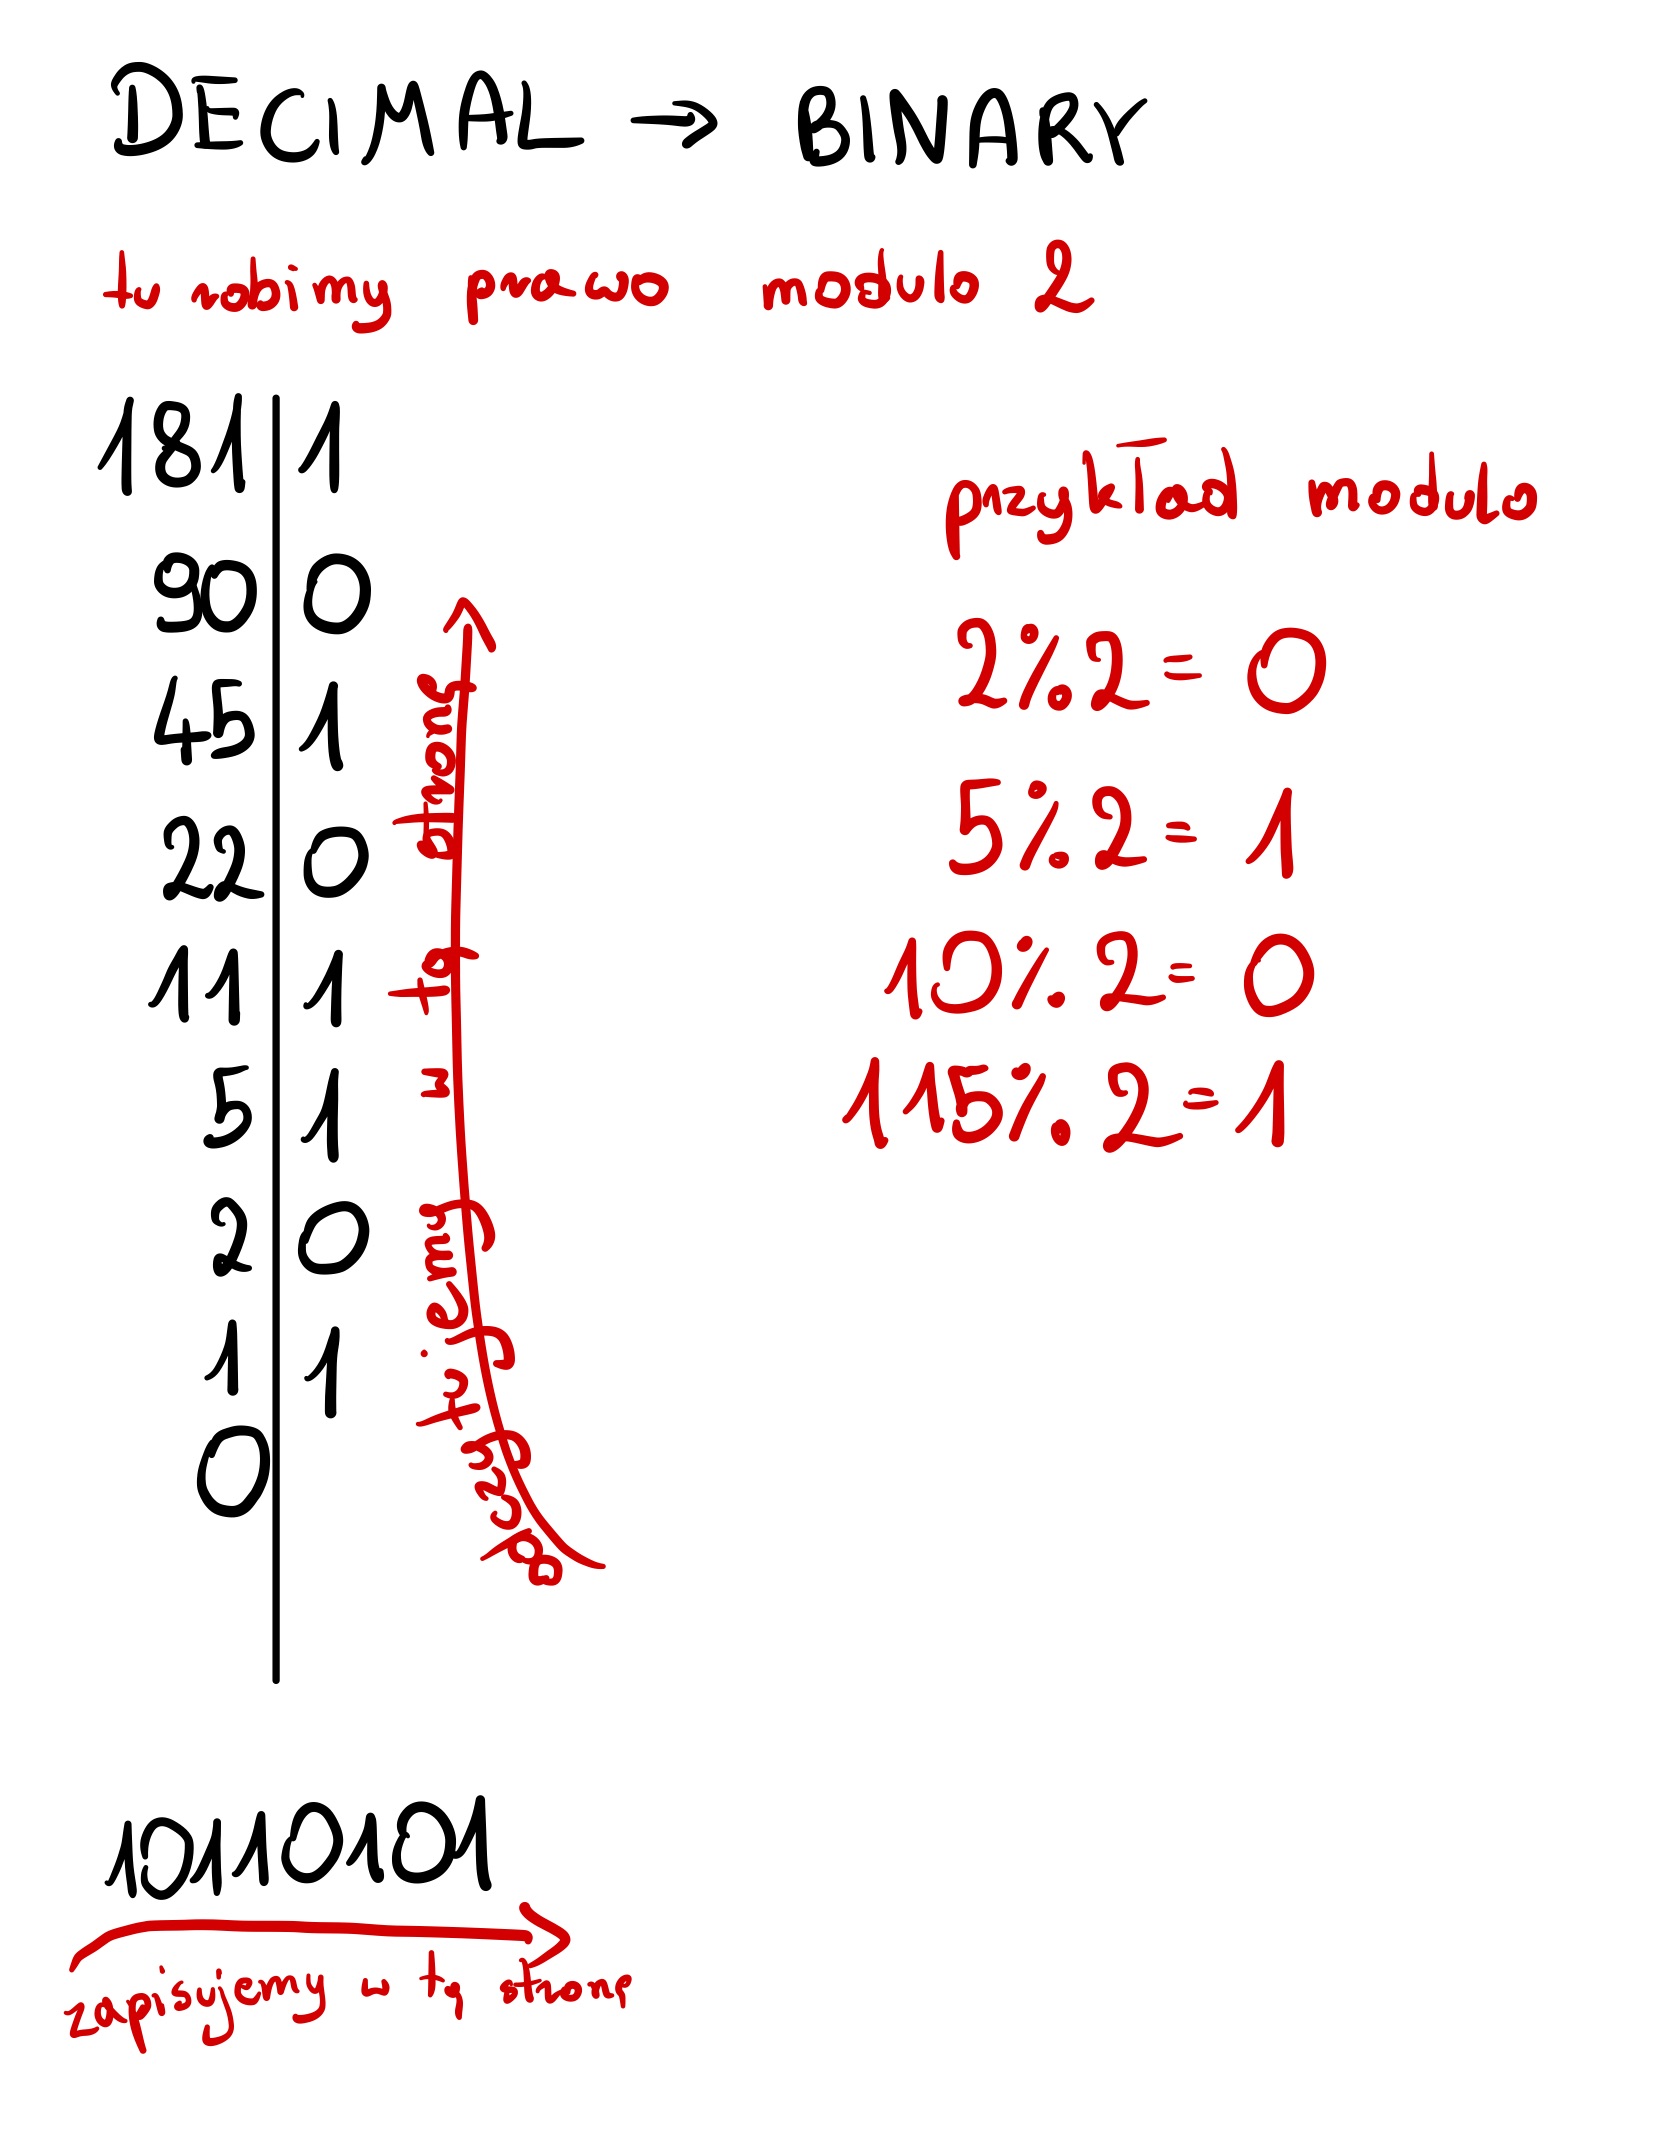 DECIMAL → BINARY
tu robimy prawo modulo 2
181 | 1
90 | 0
45 | 1
22 | 0
11 | 1
5 | 1
2 | 0
1 | 1
0 |
odczytujemy w tą stronę
przykład modulo
2%2 = 0
5%2 = 1
10%2 = 0
115%2 = 1
10110101
zapisujemy w tą stronę